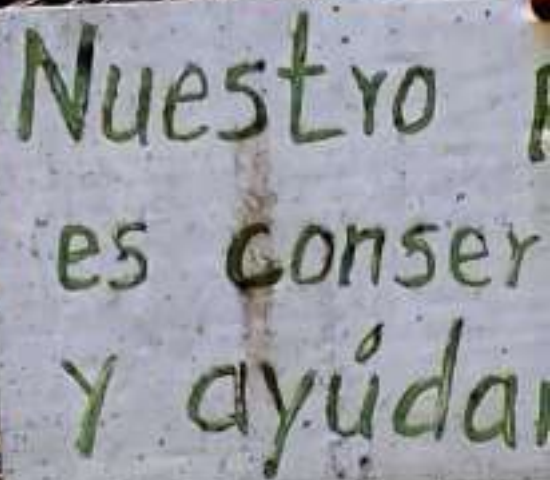 Nuestro
es conser
y ayúdar